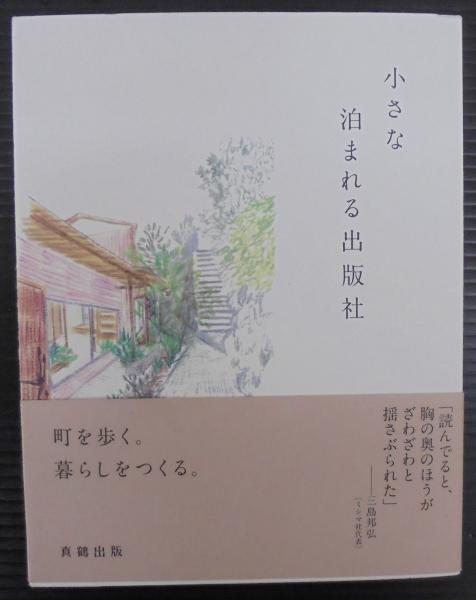 小さな
泊まれる出版社
「読んでると、
胸の奥のほうが
ざわざわと
揺さぶられた」
――三島邦弘
（ミシマ社代表）
町を歩く。
暮らしをつくる。
真鶴出版